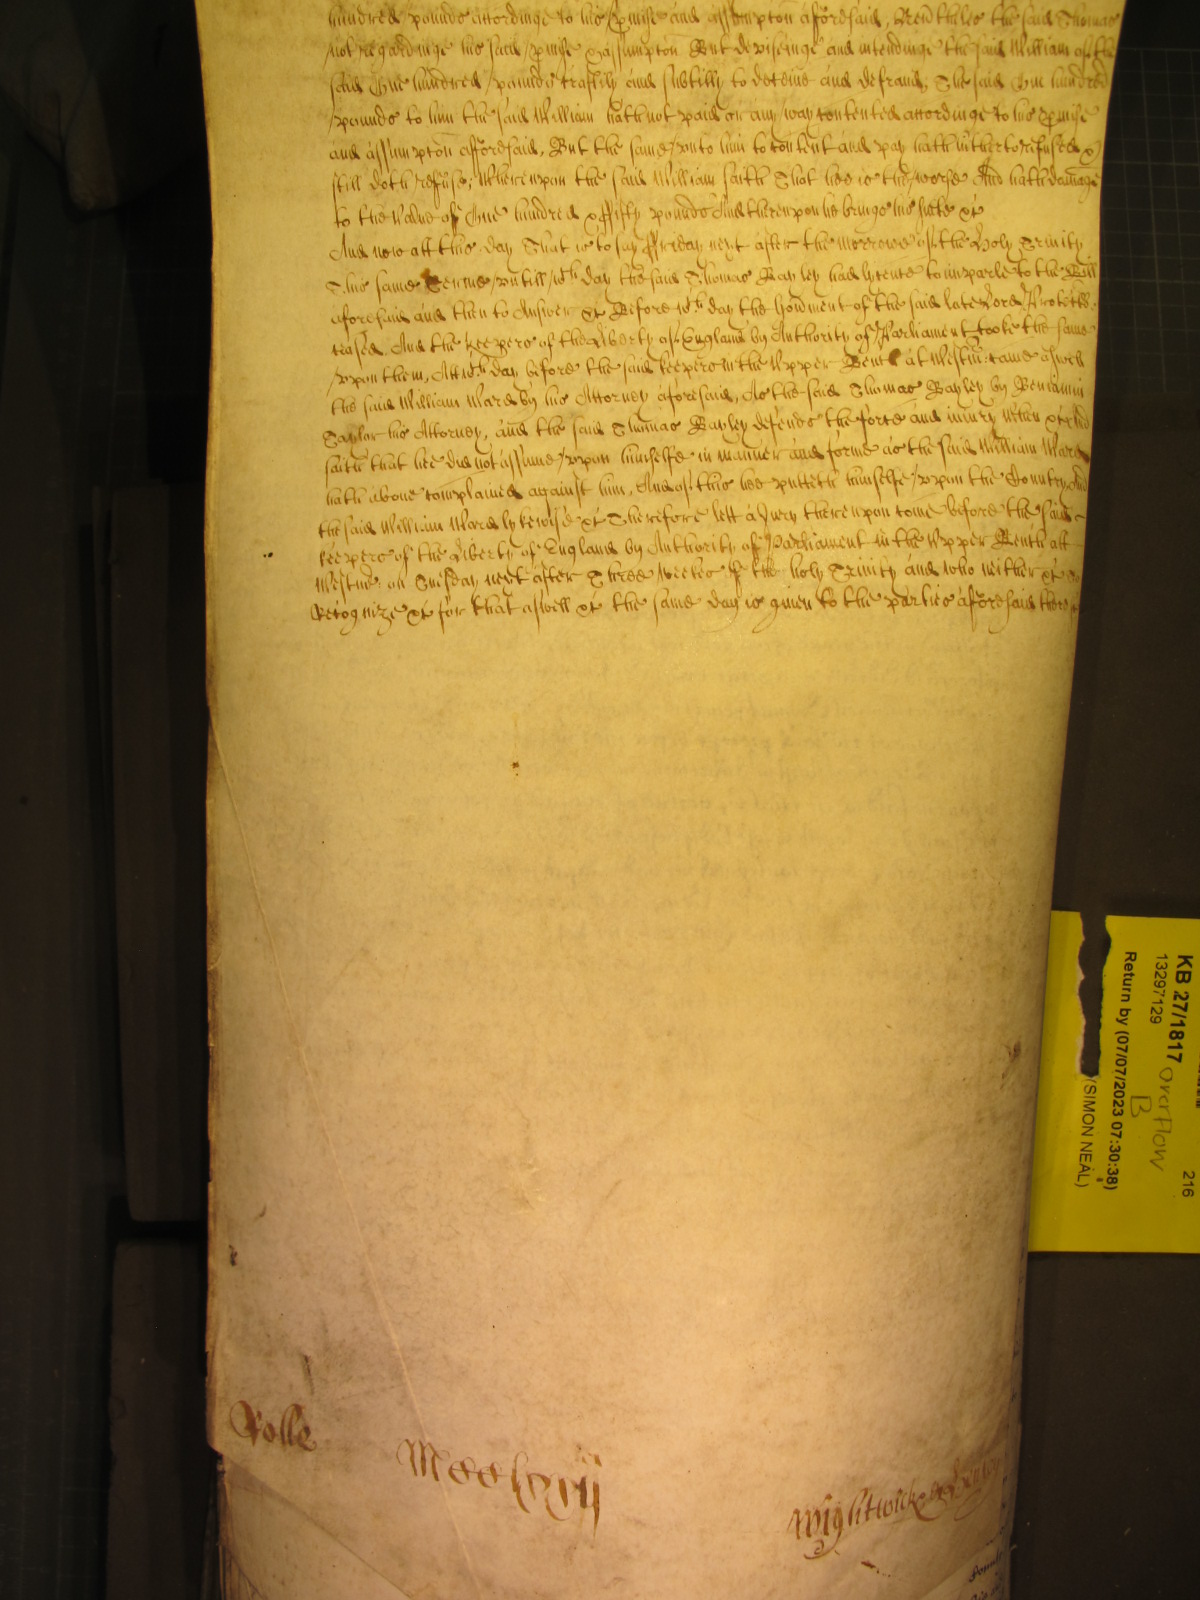 hundred pounds accordinge to his pmise and assumpton aforesaid, Neuertheles the said Thomas
not regardinge his said pmise & assumpton But deviseinge and intendinge the said William of the
said One hundred pounds craftily and subtilly to deceive and defraud, The said One hundred
pounds to him the said William hath not paid or any way contented accordinge to his pmise
and assumpton aforesaid, But the same vnto him to content and pay hath hitherto refused &
still doth refuse; Wherevpon the said William saith That hee is the worse And hath damage
to the Value of One hundred & fifty pounds And therevpon he brings his suite &c
And now att this day That is to say ffriday next after the morrowe of the Holy Trinity
This same Terme, vntill wch day the said Thomas Bayley had lycence to imparle to the Bill
aforesaid and then to Answer &c Before wch day the Goũment of the said late Lord Protector
ceased. And the keepers of the Liberty of England by Authority of Parliament tooke the same
vpon them, Att wch day before the said keepers in the Vpper Bench at Westm̃ came aswell
the said William Ward by his Attorney aforesaid, As the said Thomas Bayley by Beniamin
Taylor his Attorney, and the said Thomas Bayley defends the force and iniury when &c And
saith that hee did not assume vpon himselfe in manner and forme as the said William Ward
hath aboue complained against him, And of this hee putteth himselfe vpon the Country, And
the said William Ward lykewise &c Therefore lett a Iury therevpon come before the said
keepers of the Liberty of England by Authority of Parliament in the Vpper Bench att
Westm̃ on Tuesday next after Three weekes of the holy Trinity and who neither &c to
Recognize &c for that aswell &c the same day is giuen to the parties aforesaid there &c
Rolle
Wightwick
KB 27/1817
13297129
overflow
B
216
Return by (07/07/2023 07:30:38)
(SIMON NEAL)